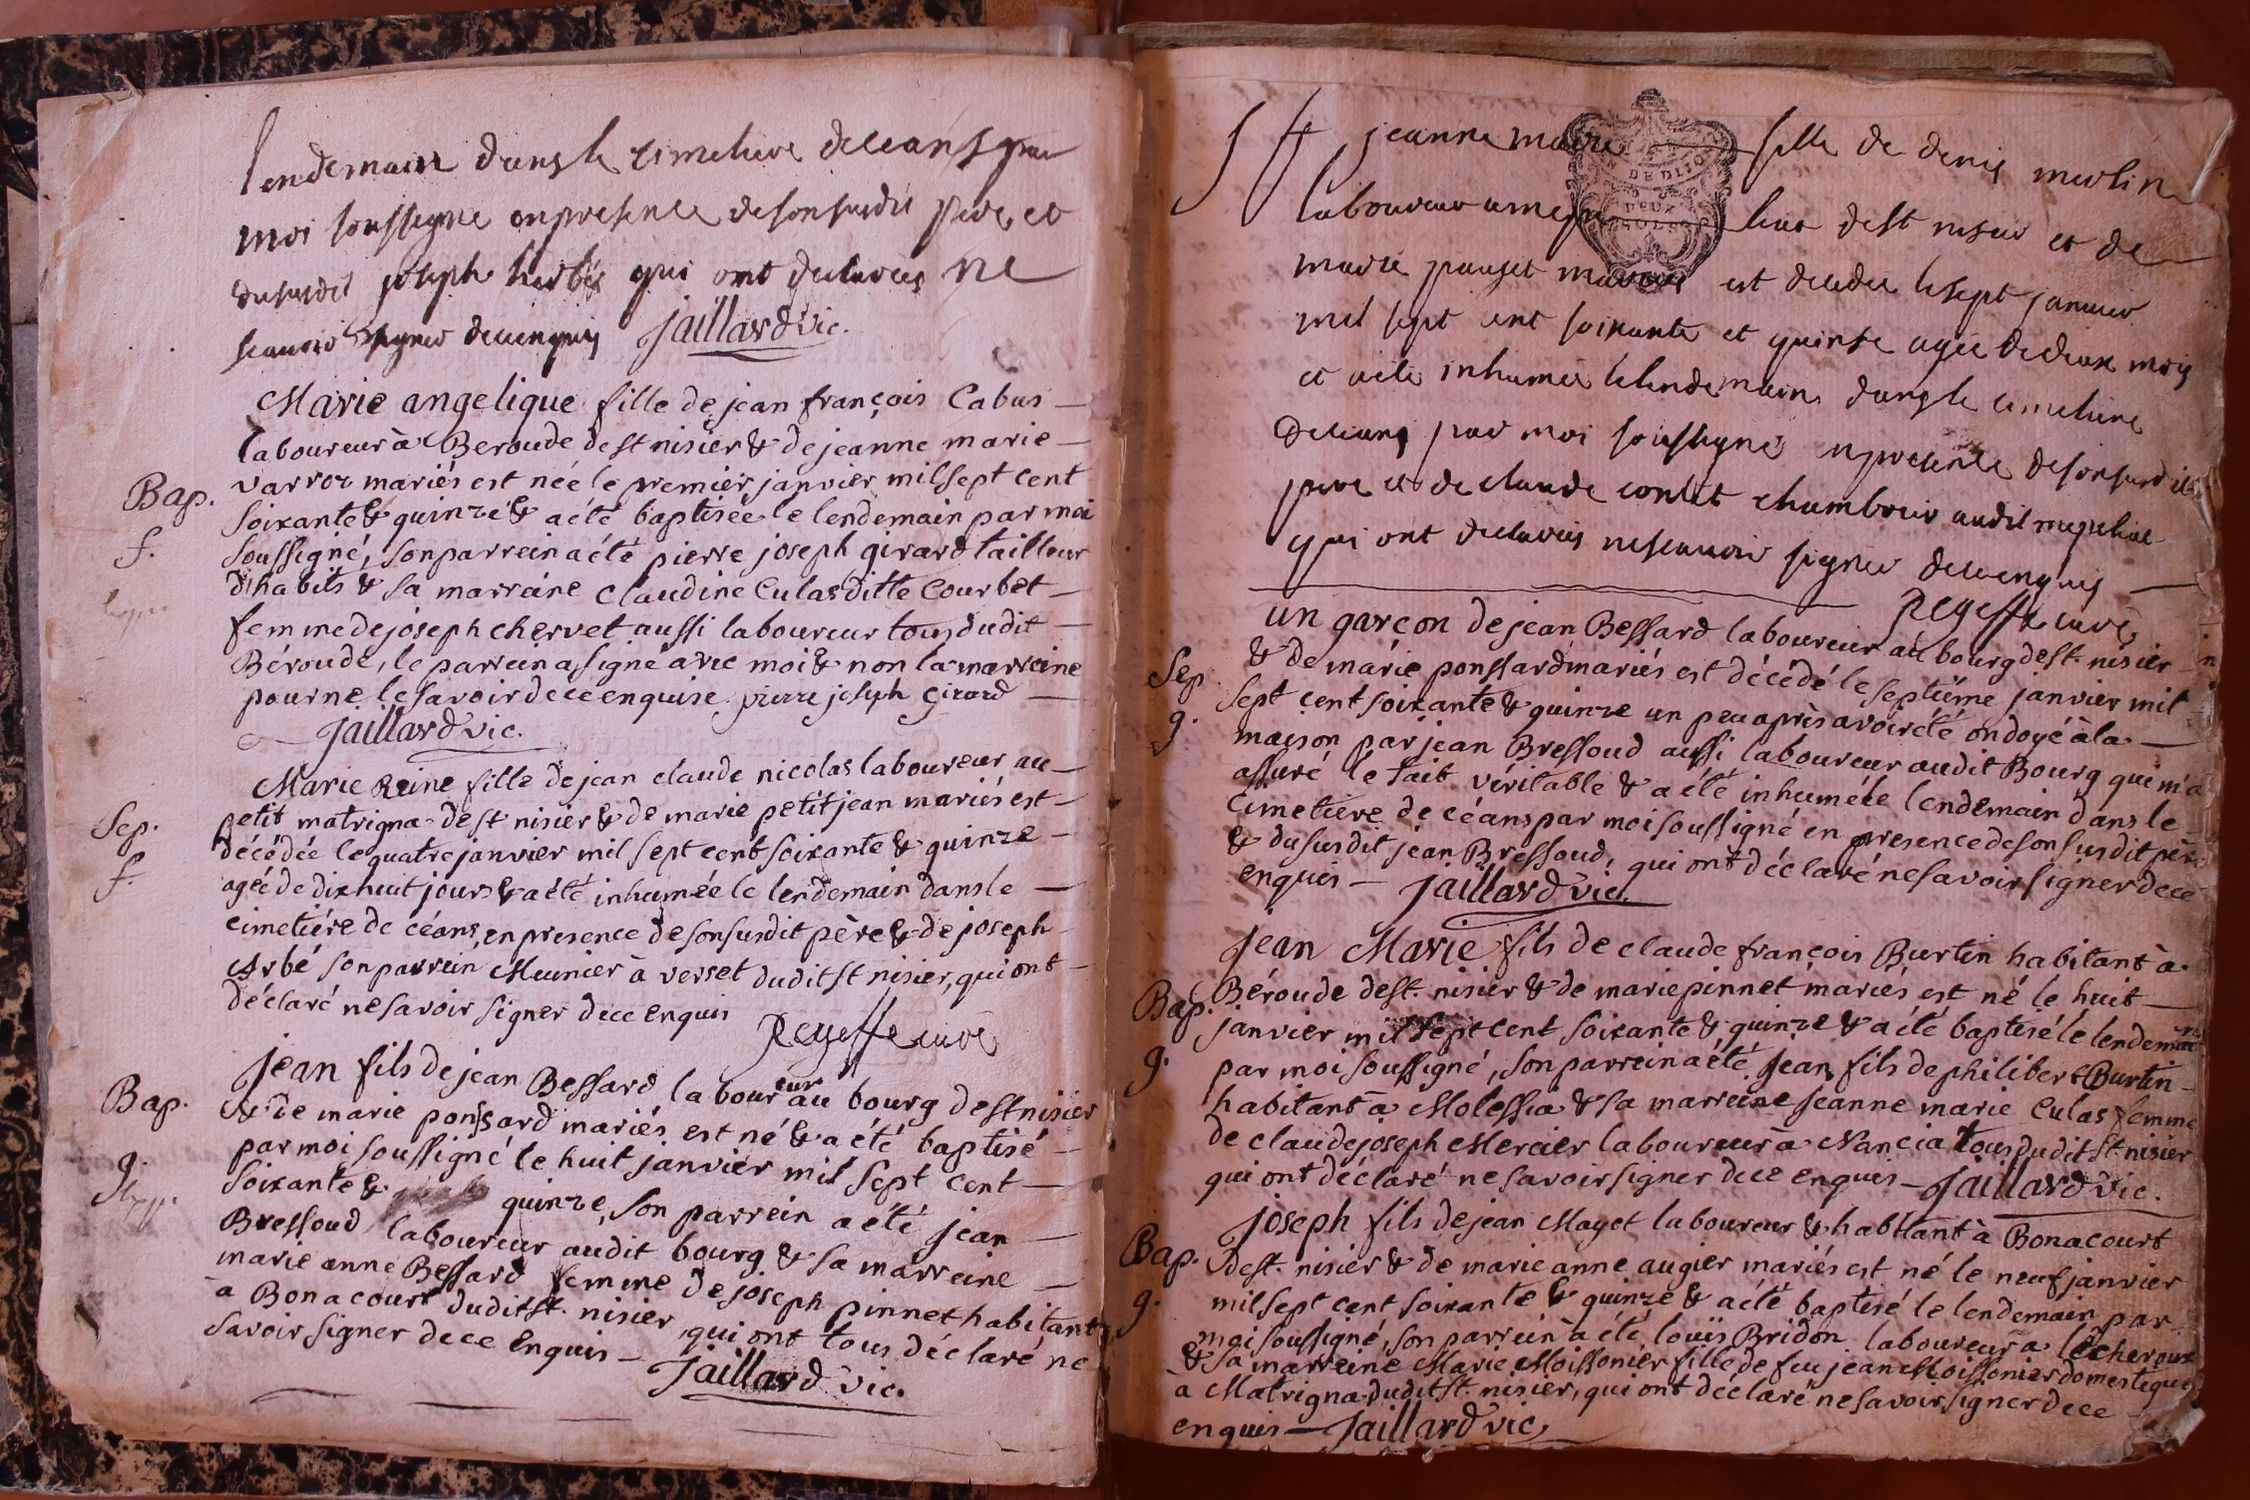 lendemain dans le cimetiere de ceans par
moi soussigne en presence de son susdit pere et
du susdit joseph herbés qui ont declarés ne
scauoir signer de ce enquis Jaillard vic.
Marie angelique fille de jean françois Cabus
laboureur à Beroude de st nisier & de jeanne marie
Bap. varror mariés est née le premier janvier mil sept cent
soixante & quinze & a été baptisée le lendemain par moi
f. soussigné, son parrein a été pierre joseph girard tailleur
d'habits & sa marreine Claudine Culas ditte Courbet
femme de joseph chervet aussi laboureur tous dudit
Béroude, le parrein a signé avec moi & non la marreine
pour ne le savoir de ce enquise. pierre joseph girard
Jaillard vic.
Marie Reine fille de jean claude nicolas laboureur au
Sep. petit matrigna de st nisier & de marie petitjean mariés est
décédée le quatre janvier mil sept cent soixante & quinze
f. agée de dix huit jours & a été inhumée le lendemain dans le
cimetiére de céans, en presence de son susdit père & de joseph
Arbé son parrein Meunier à verset dudit st nisier, qui ont
déclaré ne savoir signer de ce enquis
Regeffe curé
jean fils de jean Bessard laboureur au bourg de st nisier
Bap. & de marie ponssard mariés est né & a été baptisé
par moi soussigné le huit janvier mil sept cent
g. soixante & quinze, son parrein a été jean
Bressoud laboureur audit bourg & sa marreine
marie anne Bessard femme de joseph pinnet habitant
à Bonacourt dudit st. nisier qui ont tous déclaré ne
savoir signer de ce enquis — Jaillard vic.
jeanne marie fille de denis merlin
laboureur a lieu de st nisier et de
marie pauget mariés est decedee le sept januier
mil sept cent soixante et quinse agée de deux mois
et a été inhumée le lendemain dans le cimetiere
de ceans par moi soussigné en presence de son susdit
pere et de claude contet chambrier audit
qui ont declarés ne scauoir signer de ce enquis
Regeffe curé
un garcon de jean Bessard laboureur au bourg de st. nisier
Sep. & de marie ponssard mariés est décédé le septiéme janvier mil
g. sept cent soixante & quinze un peu après avoir été ondoyé à la
maison par jean Bressoud aussi laboureur audit Bourg qui m'a
assuré le fait véritable & a été inhumé le lendemain dans le
cimetiere de céans par moi soussigné en presence de son susdit père
& du susdit jean Bressoud, qui ont déclaré ne savoir signer de ce
enquis — Jaillard vic.
jean Marie fils de claude françois Burtin habitant à
Bap. Béroude de st. nisier & de marie pinnet mariés est né le huit
janvier mil sept cent soixante & quinze & a été baptisé le lendemain
g. par moi soussigné, son parrein a été jean fils de philibert Burtin
habitant à Molessia & sa marreine jeanne marie Culas femme
de claude joseph Mercier laboureur à Nancia tous dudit st nisier
qui ont déclaré ne savoir signer de ce enquis — Jaillard vic.
joseph fils de jean Mayet laboureur & habitant à Bonacourt
Bap. de st. nisier & de marie anne augier mariés est né le neuf janvier
g. mil sept cent soixante & quinze & a été baptisé le lendemain par
moi soussigné, son parrein a été louïs Bridon laboureur à lécheroux
& sa marreine Marie Moissonier fille de feu jean Moissonier domestique
à Matrigna dudit st. nisier, qui ont déclaré ne savoir signer de ce
enquis — Jaillard vic.